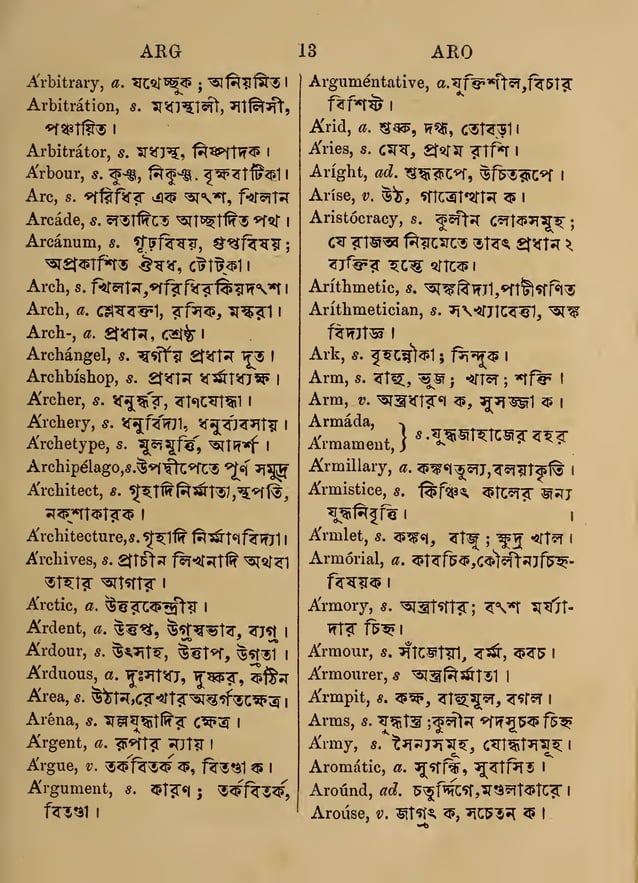 ARG 13 ARO
A´rbitrary, a. যথেচ্ছুক ; অনিয়মিত।
Arbitrátion, s. মধ্যস্থালী, সালিসী,
পঞ্চায়িত ।
Arbitrátor, s. মধ্যস্থ, নিষ্পাদক ।
A´rbour, s. কুঞ্জ, নিকুঞ্জ. বৃক্ষবাটিকা।
Arc, s. পরিধির এক অংশ, খিলান
Arcáde, s. লতাদিতে আচ্ছাদিত পথ ।
Arcánum, s. গূঢ়বিষয়, গুপ্তবিষয় ;
অপ্রকাশিত ঔষধ, টোট্কা।
Arch, s. খিলান,পরিধির কিয়দংশ।
Arch, a. শ্লেষবক্তা, রসিক, মস্করা ।
Arch-, a. প্রধান, শ্রেষ্ঠ ।
Archángel, s. স্বর্গীয় প্রধান দূত ।
Archbíshop, s. প্রধান ধর্ম্মাধ্যক্ষ ।
A´rcher, s. ধনুর্দ্ধর, বাণযোদ্ধা ।
A´rchery, s. ধনুর্বিদ্যা, ধনুর্ব্যবসায় ।
A´rchetype, s. মূলমূর্ত্তি, আদর্শ ।
Archipélago,s.উপদ্বীপেতে পূর্ণ সমুদ্র
A´rchitect, s. গৃহাদিনির্ম্মাতা,স্থপতি,
নক্শাকারক ।
A´rchitecture,s.গৃহাদি নির্ম্মাণবিদ্যা।
A´rchives, s. প্রাচীন লিখনাদি অথবা
তাহার আগার ।
A´rctic, a. উত্তরকেন্দ্রীয় ।
A´rdent, a. উত্তপ্ত, উগ্রস্বভাব, ব্যগ্র ।
A´rdour, s. উৎসাহ, উত্তাপ, উগ্রতা ।
A´rduous, a. দুঃসাধ্য, দুষ্কর, কঠিন
A´rea, s. উঠান,রেখার অন্তর্গতক্ষেত্র।
Aréna, s. মল্লযুদ্ধাদির ক্ষেত্র ।
A´rgent, a. রূপার ন্যায় ।
A´rgue, v. তর্কবিতর্ক ক, বিতণ্ডা ক ।
A´rgument, s. কারণ ; তর্কবিতর্ক,
বিতণ্ডা ।
Arguméntative, a.যুক্তিশীল,বিচার
বিশিষ্ট ।
A´rid, a. শুষ্ক, দগ্ধ, তোবড়া।
A´ries, s. মেষ, প্রথম রাশি ।
Aríght, ad. শুদ্ধরূপে, উচিতরূপে ।
Aríse, v. উঠ, গাত্রোত্থান ক ।
Aristócracy, s. কুলীন লোকসমূহ ;
যে রাজত্ব নিয়মেতে তাবৎ প্রধান ২
ব্যক্তির হস্তে থাকে।
Aríthmetic, s. অঙ্কবিদ্যা,পাটীগণিত
Aríthmetician, s. সংখ্যাবেত্তা, অঙ্ক
বিদ্যাজ্ঞ ।
Ark, s. বৃহন্নৌকা ; সিন্দুক ।
Arm, s. বাহু, ভুজ ; খাল ; শক্তি ।
Arm, v. অস্ত্রধারণ ক, সুসজ্জা ক ।
Armáda,
A´rmament, } s.যুদ্ধজাহাজের বহর
A´rmillary, a. কঙ্কণতুল্য,বলয়াকৃতি ।
A´rmistice, s. কিঞ্চিৎ কালের জন্য
যুদ্ধনিবৃত্তি ।
A´rmlet, s. কঙ্কণ, বাজূ ; ক্ষুদ্র খাল ।
Armórial, a. কাবচিক,কৌলীন্যচিহ্ন-
বিষয়ক ।
A´rmory, s. অস্ত্রাগার ; বংশ মর্য্যা-
দার চিহ্ন ।
A´rmour, s. সাঁজোয়া, বর্ম্ম, কবচ ।
A´rmourer, s অস্ত্রনির্ম্মাতা ।
A´rmpit, s. কক্ষ, বাহুমূল, বগল ।
Arms, s. যুদ্ধাস্ত্র ;কুলীন পদসূচক চিহ্ন
A´rmy, s. সৈন্যসমূহ, যোদ্ধাসমূহ ।
Aromátic, a. সুগন্ধি, সুবাসিত ।
Aroúnd, ad. চতুর্দ্দিগে,মণ্ডলাকারে ।
Aroúse, v. জাগ্রৎ ক, সচেতন ক ।